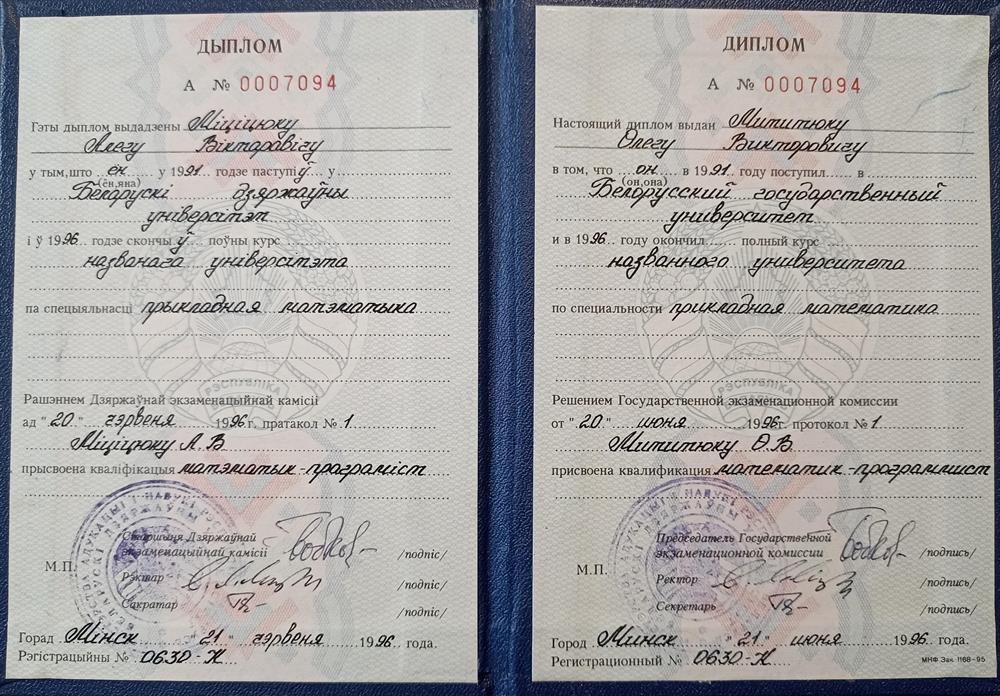 ДЫПЛОМ
А № 0007094
Гэты дыплом выдадзены Міціцюку
Алегу Віктаравічу
у тым, што ён у 1991 годзе паступіў у
(ён, яна)
Беларускі дзяржаўны
універсітэт
і ў 1996 годзе скончыў поўны курс
названага універсітэта
па спецыяльнасці прыкладная матэматыка
РЭСПУБЛІКА
Рашэннем Дзяржаўнай экзаменацыйнай камісіі
ад "20" чэрвеня 1996 г. пратакол № 1
Міціцюку А. В.
прысвоена кваліфікацыя матэматык-праграміст
Старшыня Дзяржаўнай
экзаменацыйнай камісіі /подпіс/
М.П.
Рэктар /подпіс/
Сакратар /подпіс/
Горад Мінск "21" чэрвеня 1996 года.
Рэгістрацыйны № 0630-Н
ДИПЛОМ
А № 0007094
Настоящий диплом выдан Мититюку
Олегу Викторовичу
в том, что он в 1991 году поступил в
(он, она)
Белорусский государственный
университет
и в 1996 году окончил полный курс
названного университета
по специальности прикладная математика
РЭСПУБЛІКА
Решением Государственной экзаменационной комиссии
от "20" июня 1996 г. протокол № 1
Мититюку О. В.
присвоена квалификация математик-программист
Председатель Государственной
экзаменационной комиссии /подпись/
М.П.
Ректор /подпись/
Секретарь /подпись/
Город Минск "21" июня 1996 года.
Регистрационный № 0630-Н
МНФ Зак. 1168-95